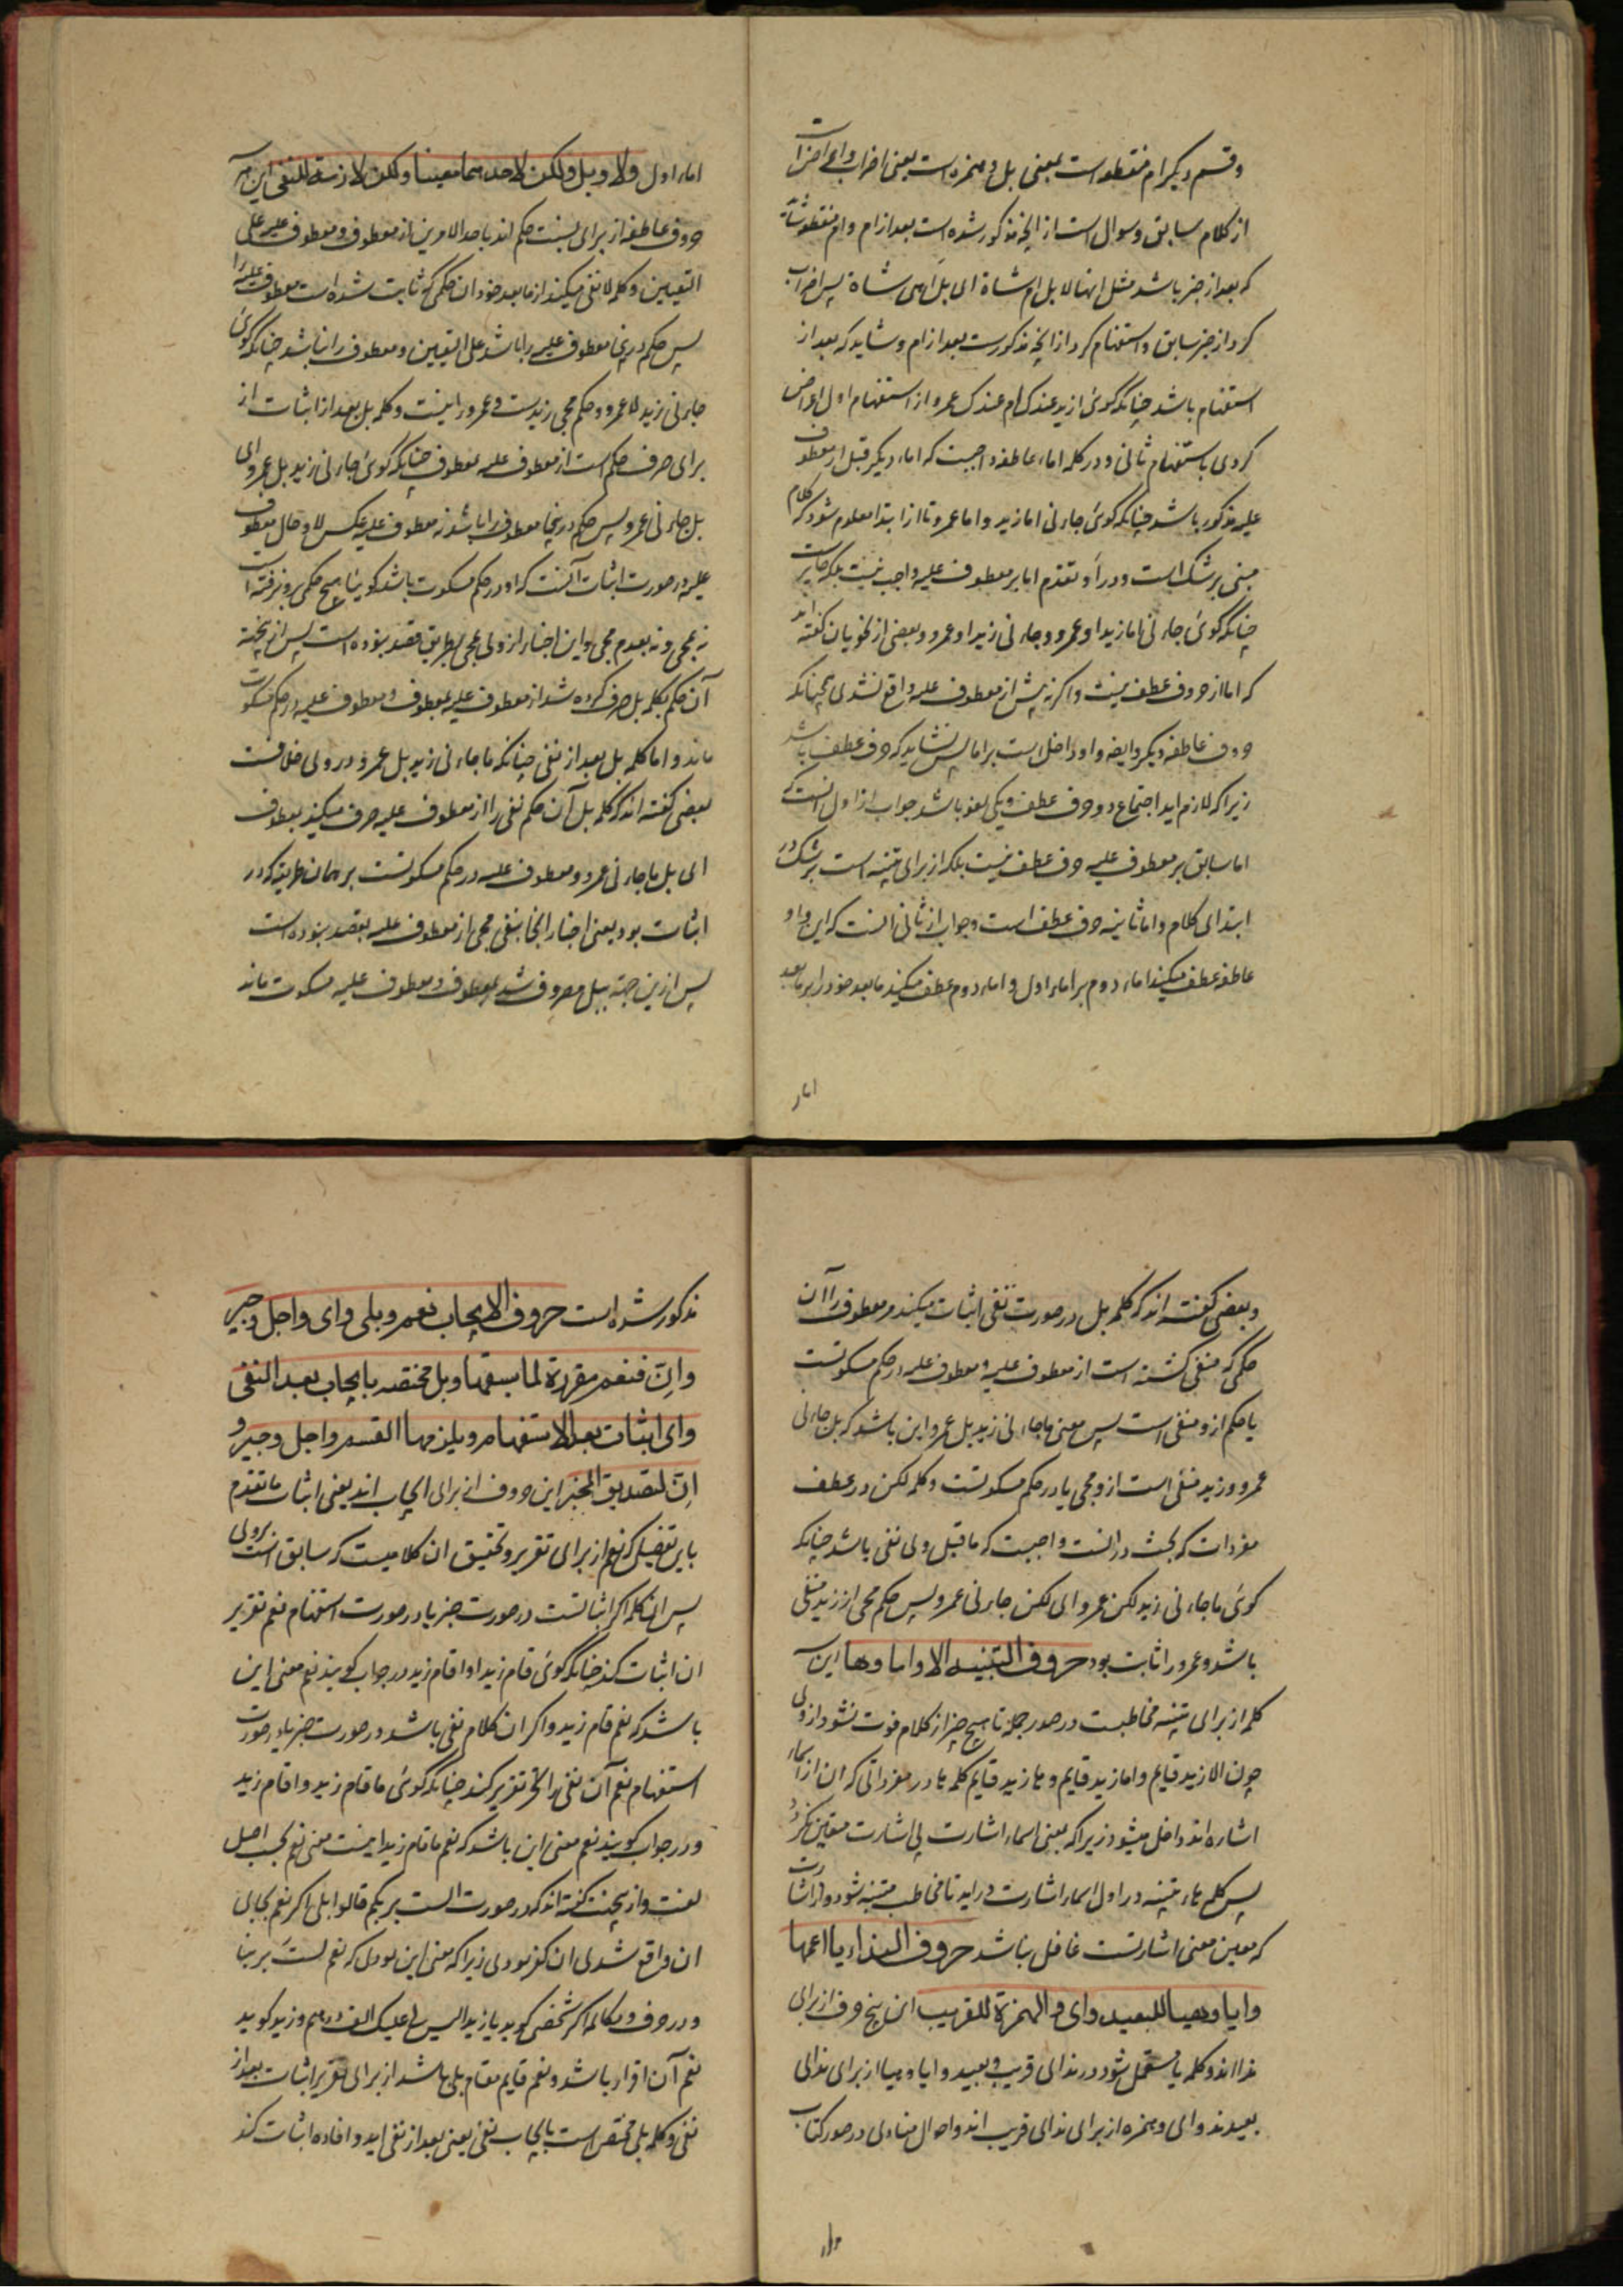 وقسم دیکر ام منقطعه است بمعنی بل و همزه است یعنی اضراب واعراضست
از کلام سابق وسوال است از انچه مذکور شده است بعد از ام وام منقطعه شاید
که بعد از خبر باشد مثل انها لابل ام شاة ای بل اهی شاة پس اضراب
کرد از خبر سابق واستفهام کرد از انچه مذکورست بعد از ام وشاید که بعد از
استفهام باشد چنانکه کوئ ازید عندک ام عندک عمرو از استفهام اول اعراض
کردی باستفهام ثانی ودر کلمه اماء عاطفه واجبست که اماء دیکر قبل از معطوف
علیه مذکور باشد چنانکه کوئ جاءنی اما زید واما عمرو تا از ابتدا معلوم شود که کلام
مبنی بر شک است ودر او تقدم اما بر معطوف علیه واجب نیست بلکه جایزست
چنانکه کوئ جاءنی اما زید او عمرو وجاءنی زید او عمرو وبعضی از نحویان کفته اند
که اما از حروف عطف نیست واکرنه پیش از معطوف علیه واقع نشدی همچنانکه
حروف عاطفه دیکر وایضه واو داخل است بر اما پس نشاید که حرف عطف باشد
زیرا که لازم اید اجتماع دو حرف عطف ویکی لغو باشد جواب از اول انست که
اما سابق بر معطوف علیه حرف عطف نیست بلکه از برای تنبیه است بر شک در
ابتدای کلام واما ثانیه حرف عطف است وجواب از ثانی انست که این واو
عاطفه عطف میکند اماء دوم بر اماء اول واماء دوم عطف میکند ما بعد خود را بر ما بعد
اماء
اماء اول ولا وبل ولکن لاحدهما معینا ولکن لازمة للنفی این سه
حروف عاطفه از برای نسبت حکم اند باحد الامرین از معطوف ومعطوف علیه علی
التعیین وکلمه لا نفی میکند از ما بعد خود ان حکمی که ثابت شده است معطوف علیه را
پس حکم درین معطوف علیه را باشد علی التعیین ومعطوف را نباشد چنانکه کوئ
جاءنی زید لا عمرو وحکم مجی زیدست وعمرو را نیست وکلمه بل بعد از اثبات از
برای صرف حکم است از معطوف علیه بمعطوف چنانکه کوئ جاءنی زید بل عمرو ای
بل جاءنی عمرو پس حکم درینجا معطوف را باشد نه معطوف علیه عکس لا وحال معطوف
علیه در صورت اثبات آنست که او در حکم مسکوت باشد کوئیا هیچ حکمی برو نرفته است
نه بمجی ونه بعدم مجی واین اخبار از وی بمجی بطریق قصد نبوده است پس از ینجهته
آن حکم بکلمه بل صرف کرده شد از معطوف علیه بمعطوف ومعطوف علیه در حکم مسکوت
ماند واما کلمه بل بعد از نفی چنانکه ما جاءنی زید بل عمرو درو لی خلافست
بعضی کفته اند که کلمه بل آن حکم نفی را از معطوف علیه صرف میکند بمعطوف
ای بل ما جاءنی عمرو ومعطوف علیه در حکم مسکوتست بر همان طریقه که در
اثبات بود یعنی اخبار انجا بنفی مجی از معطوف علیه بقصد نبوده است
پس ازین جهته ببل مصروف شد بمعطوف ومعطوف علیه مسکوت ماند
وبعضی کفته اند که کلمه بل در صورت نفی اثبات میکند معطوف را آن
حکمی که منفی کشته است از معطوف علیه ومعطوف علیه در حکم مسکوتست
یا حکم ازو منفی است پس معنی ما جاءنی زید بل عمرو این باشد که بل جاءنی
عمرو وزید منفی است ازو مجی یا در حکم مسکوتست وکلمه لکن در عطف
مفردات که بحث در انست واجبست که ما قبل وی نفی باشد چنانکه
کوئ ما جاءنی زید لکن عمرو ای لکن جاءنی عمرو پس حکم مجی از زید منفی
باشد وعمرو را ثابت بود حروف التنبیه الا واما وها این سه
کلمه از برای تنبیه مخاطبست در صدر جمله تا هیچ چیز از کلام فوت نشود از وی
چون الا زید قایم واما زید قایم وها زید قایم کلمه ها در مفرداتی که ان از اسماء
اشاره اند داخل میشود زیرا که معنی اسماء اشارت بی اشارت متعین نکردد
پس کلمه ها تنبیه در اول اسماء اشارت در اید تا مخاطب متنبه شود واز اشارت
که معین معنی اشارتست غافل نباشد حروف النداء یا اعمها
وایا وهیا للبعید وای والهمزة للقریب این پنج حرف از برای
ندا اند وکلمه یا مستعمل شود در ندای قریب وبعید وایا وهیا از برای ندای
بعیدند وای وهمزه از برای ندای قریب اند واحوال منادی در صدر کتاب
مذکور شده است حروف الایجاب نعم وبلی وای واجل وجیر
وانّ فنعم مقررة لما سبقها وبلی مختصه بایجاب بعد النفی
وای اثبات بعد الاستفهام ویلزمها القسم واجل وجیر و
انّ لتصدیق المخبر این حروف از برای ایجاب اند یعنی اثبات ما تقدم
باین تفصیل که نعم از برای تقریر وتحقیق ان کلامیست که سابق است بروی
پس ان کلمه اکر اثباتست در صورت خبر یا در صورت استفهام نعم تقریر
ان اثبات کند چنانکه کوئ قام زید او اقام زید در جواب کویند نعم معنی این
باشد که نعم قام زید واکر ان کلام نفی باشد در صورت خبر یا در صورت
استفهام نعم آن نفی را تقریر کند چنانکه کوئ ما قام زید واقام زید
ودر جواب کویند نعم معنی این باشد که نعم ما قام زید اینست معنی نعم بحسب اصل
لغت واز ینجهت کفته اند که در صورت الست بربکم قالوا بلی اکر نعم بجای
ان واقع شدی ان کفر بودی زیرا که معنی این بودی که نعم لستَ بربنا
ودر عرف ومکالمه اکر شخصی کوید یا زید الیس لی علیک الف درهم وزید کوید
نعم آن اقرار باشد ونعم قایم مقام بلی باشد از برای تقریر اثبات بعد از
نفی وکلمه بلی مختص است بایجاب نفی یعنی بعد از نفی اید وافاده اثبات کند